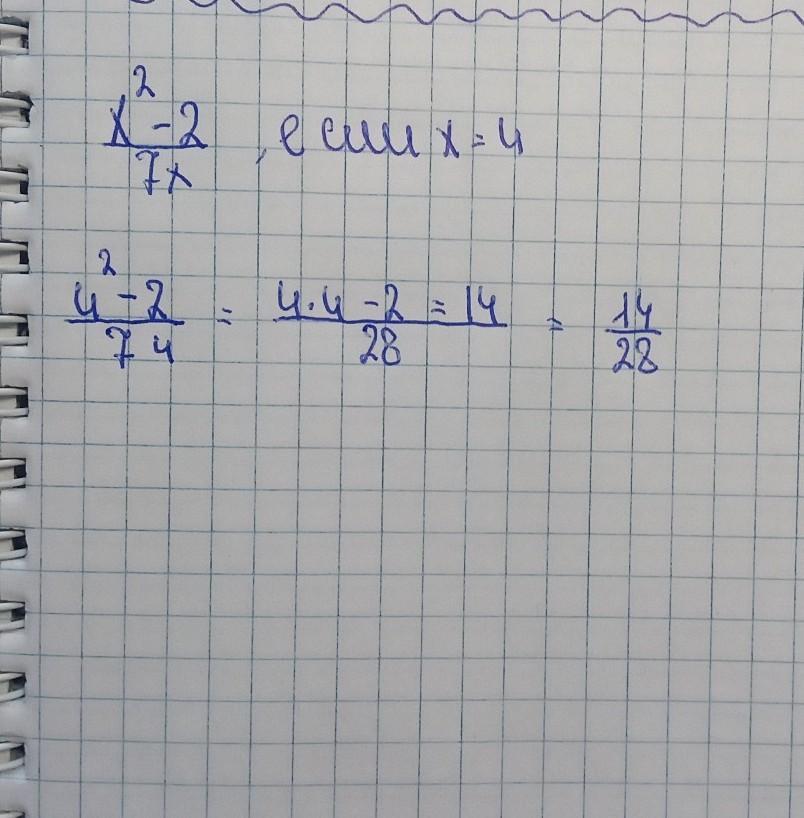 x² - 2 / 7x , если x = 4
4² - 2 / 7 4 = 4 · 4 - 2 = 14 / 28 = 14 / 28